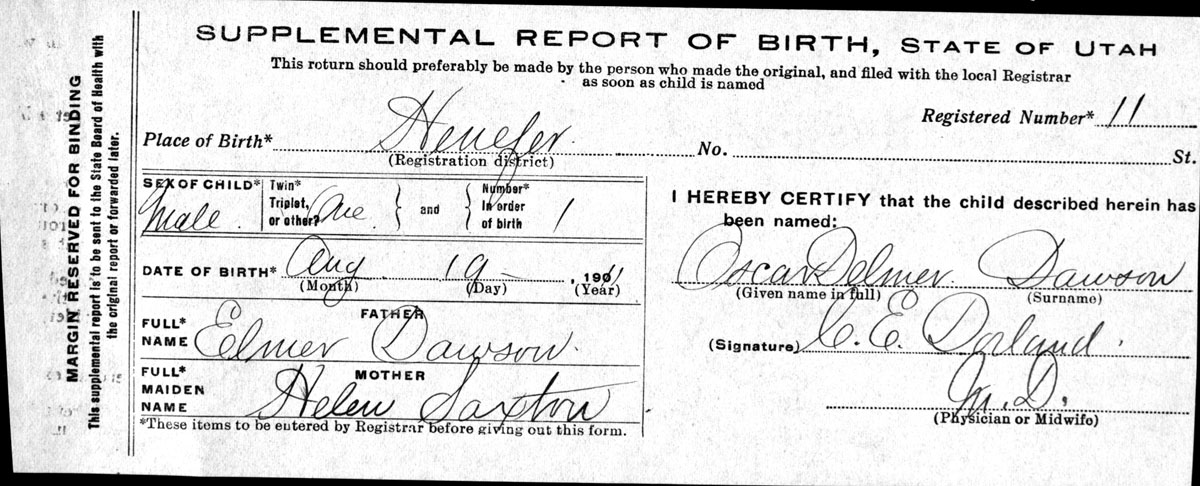 SUPPLEMENTAL REPORT OF BIRTH, STATE OF UTAH
This return should preferably be made by the person who made the original, and filed with the local Registrar
as soon as child is named
Registered Number* 11
Place of Birth* Henefer No. St.
(Registration district)
SEX OF CHILD* Male
Twin* Triplet, or other? One } and { Number* in order of birth 1
DATE OF BIRTH* Aug 19 1911
(Month) (Day) (Year)
FATHER
FULL* NAME Elmer Dawson
MOTHER
FULL* MAIDEN NAME Helen Saxton
*These items to be entered by Registrar before giving out this form.
I HEREBY CERTIFY that the child described herein has
been named:
Oscar Delmer Dawson
(Given name in full) (Surname)
(Signature) C. E. Dorland
M. D.
(Physician or Midwife)
MARGIN RESERVED FOR BINDING
This supplemental report is to be sent to the State Board of Health with
the original report or forwarded later.